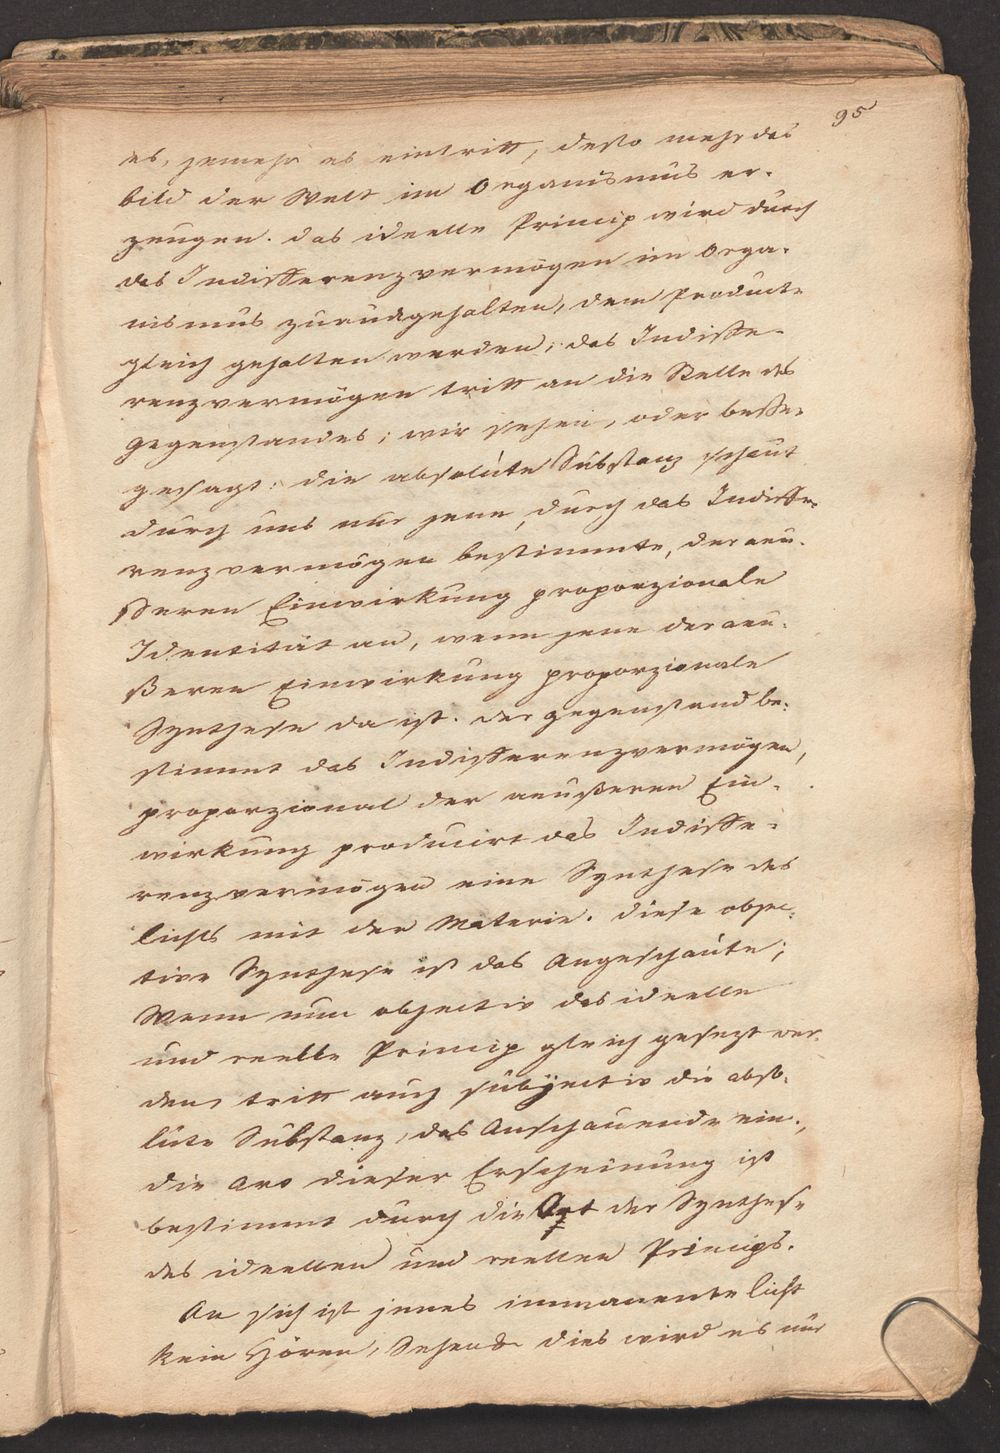 95
es, jemehr es eintritt, desto mehr das
bild der Welt im Organismus er-
zeugen. das ideelle Princip wird durch
das Indifferenzvermögen im Orga-
nismus zurückgehalten, dem Producte
gleich gehalten werden; das Indiffe-
renzvermögen tritt an die Stelle des
Gegenstandes; wir sehen, oder besser
gesagt: die absolute Substanz schaut
durch uns nur jene, durch das Indiffe-
renzvermögen bestimmte, der aeu-
sseren Einwirkung proporzionale
Identität an, wenn jene der aeu-
ßeren Einwirkung proporzionale
Synthese da ist. der gegenstand be-
stimmt das Indifferenzvermögen,
proporzional der aeußeren Ein-
wirkung producirt das Indiffe-
renzvermögen eine Synthese des
lichts mit der Materie. diese objec-
tive Synthese ist das Angeschaute;
Wenn nun objectiv das ideelle
und reelle Princip gleich gesezt wer-
den, tritt auch subjectiv die abso-
lute Substanz, das Anschauende ein,
die Art dieser Erscheinung ist
bestimmt durch die Art der Synthese
des ideellen und reellen Princips.
An sich ist jenes immanente licht
kein Hören, Sehen & dies wird es nur